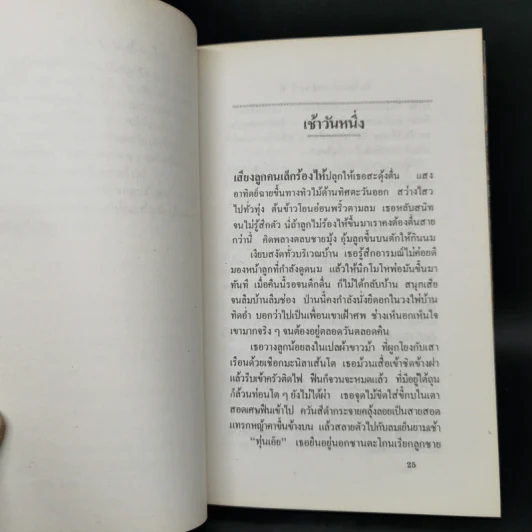 เช้าวันหนึ่ง
เสียงลูกคนเล็กร้องไห้ปลุกให้เธอสะดุ้งตื่น แสง
อาทิตย์ฉายขึ้นทางทิวไม้ด้านทิศตะวันออก สว่างไสว
ไปทั่วทุ่ง ต้นข้าวโอนอ่อนพริ้วตามลม เธอหลับสนิท
จนไม่รู้สึกตัว นี่ถ้าลูกไม่ร้องให้ขึ้นมาเราคงต้องตื่นสาย
กว่านี้ คิดพลางตลบชายมุ้ง อุ้มลูกขึ้นบนตักให้กินนม
เงียบสงัดทั่วบริเวณบ้าน เธอรู้สึกอารมณ์ไม่ค่อยดี
มองหน้าลูกที่กำลังดูดนม แล้วให้นึกโมโหพ่อมันขึ้นมา
ทันที เมื่อคืนนี้รอจนดึกดื่น ก็ไม่ได้กลับบ้าน สนุกเสีย
จนลืมบ้านลืมช่อง ป่านนี้คงกำลังนั่งยืดอกในวงไพ่บ้าน
ทิดอ่ำ บอกว่าไปเป็นเพื่อนเขาเฝ้าศพ ช่างเห็นอกเห็นใจ
เขามากจริง ๆ จนต้องอยู่ตลอดวันตลอดคืน
เธอวางลูกน้อยลงในเปลผ้าขาวม้า ที่ผูกโยงกับเสา
เรือนด้วยเชือกมะนิลาเส้นโต เธอม้วนเสื่อเข้าชิดข้างฝา
แล้วรีบเข้าครัวติดไฟ ฟืนก็จวนจะหมดแล้ว ที่มีอยู่ใต้ถุน
ก็ล้วนท่อนโต ๆ ยังไม่ได้ผ่า เธอจุดไม้ขีดใส่ขี้กบในเตา
สอดเศษฟืนเข้าไป ควันสีดำกระจายคลุ้งลอยเป็นสายสอด
แทรกหญ้าคาขึ้นข้างบน แล้วสลายตัวไปกับลมเย็นยามเช้า
“ทุ่นเอ้ย” เธอยืนอยู่นอกชานตะโกนเรียกลูกชาย
25